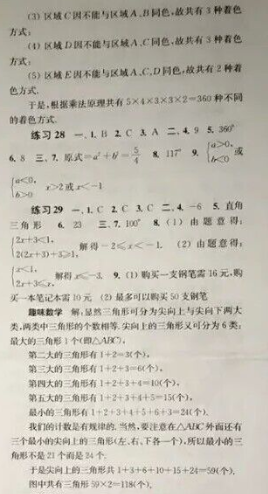 (3) 区域C因不能与区域A、B同色,故共有3种着色
方式;
(4) 区域D因不能与区域A、C同色,故共有3种着色
方式;
(5) 区域E因不能与区域A、C、D同色,故共有2种着
色方式.
于是,根据乘法原理共有5×4×3×3×2=360种不同
的着色方式.
练习28 一、1. B 2. C 3. A 二、4. 9 5. 360°
6. 8 三、7. 原式=a²+b²=5/4 8. 117° 9. {a>0, b<0 或
{a<0, b>0 x>2或x<-1
练习29 一、1. C 2. C 3. C 二、4. -6 5. 直角
三角形 6. 23 三、7. 100° 8. (1) 由题意得:
{2x+3<1, 2(2x+3)+3≥1, 解得-2≤x<-1. (2) 由题意得:
{x<1, 解得x≤-3. 9. (1) 购买一支钢笔需16元,购
买一本笔记本需10元 (2) 最多可以购买50支钢笔
趣味数学 解:显然三角形可分为尖向上与尖向下两大
类,两类中三角形的个数相等.尖向上的三角形又可分为6类:
最大的三角形1个(即△ABC),
第二大的三角形有1+2=3(个),
第三大的三角形有1+2+3=6(个),
第四大的三角形有1+2+3+4=10(个),
第五大的三角形有1+2+3+4+5=15(个),
最小的三角形有1+2+3+4+5+6+3=24(个).
我们的计数是有规律的.当然,要注意在△ABC外面还有
三个最小的尖向上的三角形(左、右、下各一个),所以最小的三
角形不是21个而是24个.
于是尖向上的三角形共1+3+6+10+15+24=59(个).
图中共有三角形59×2=118(个).